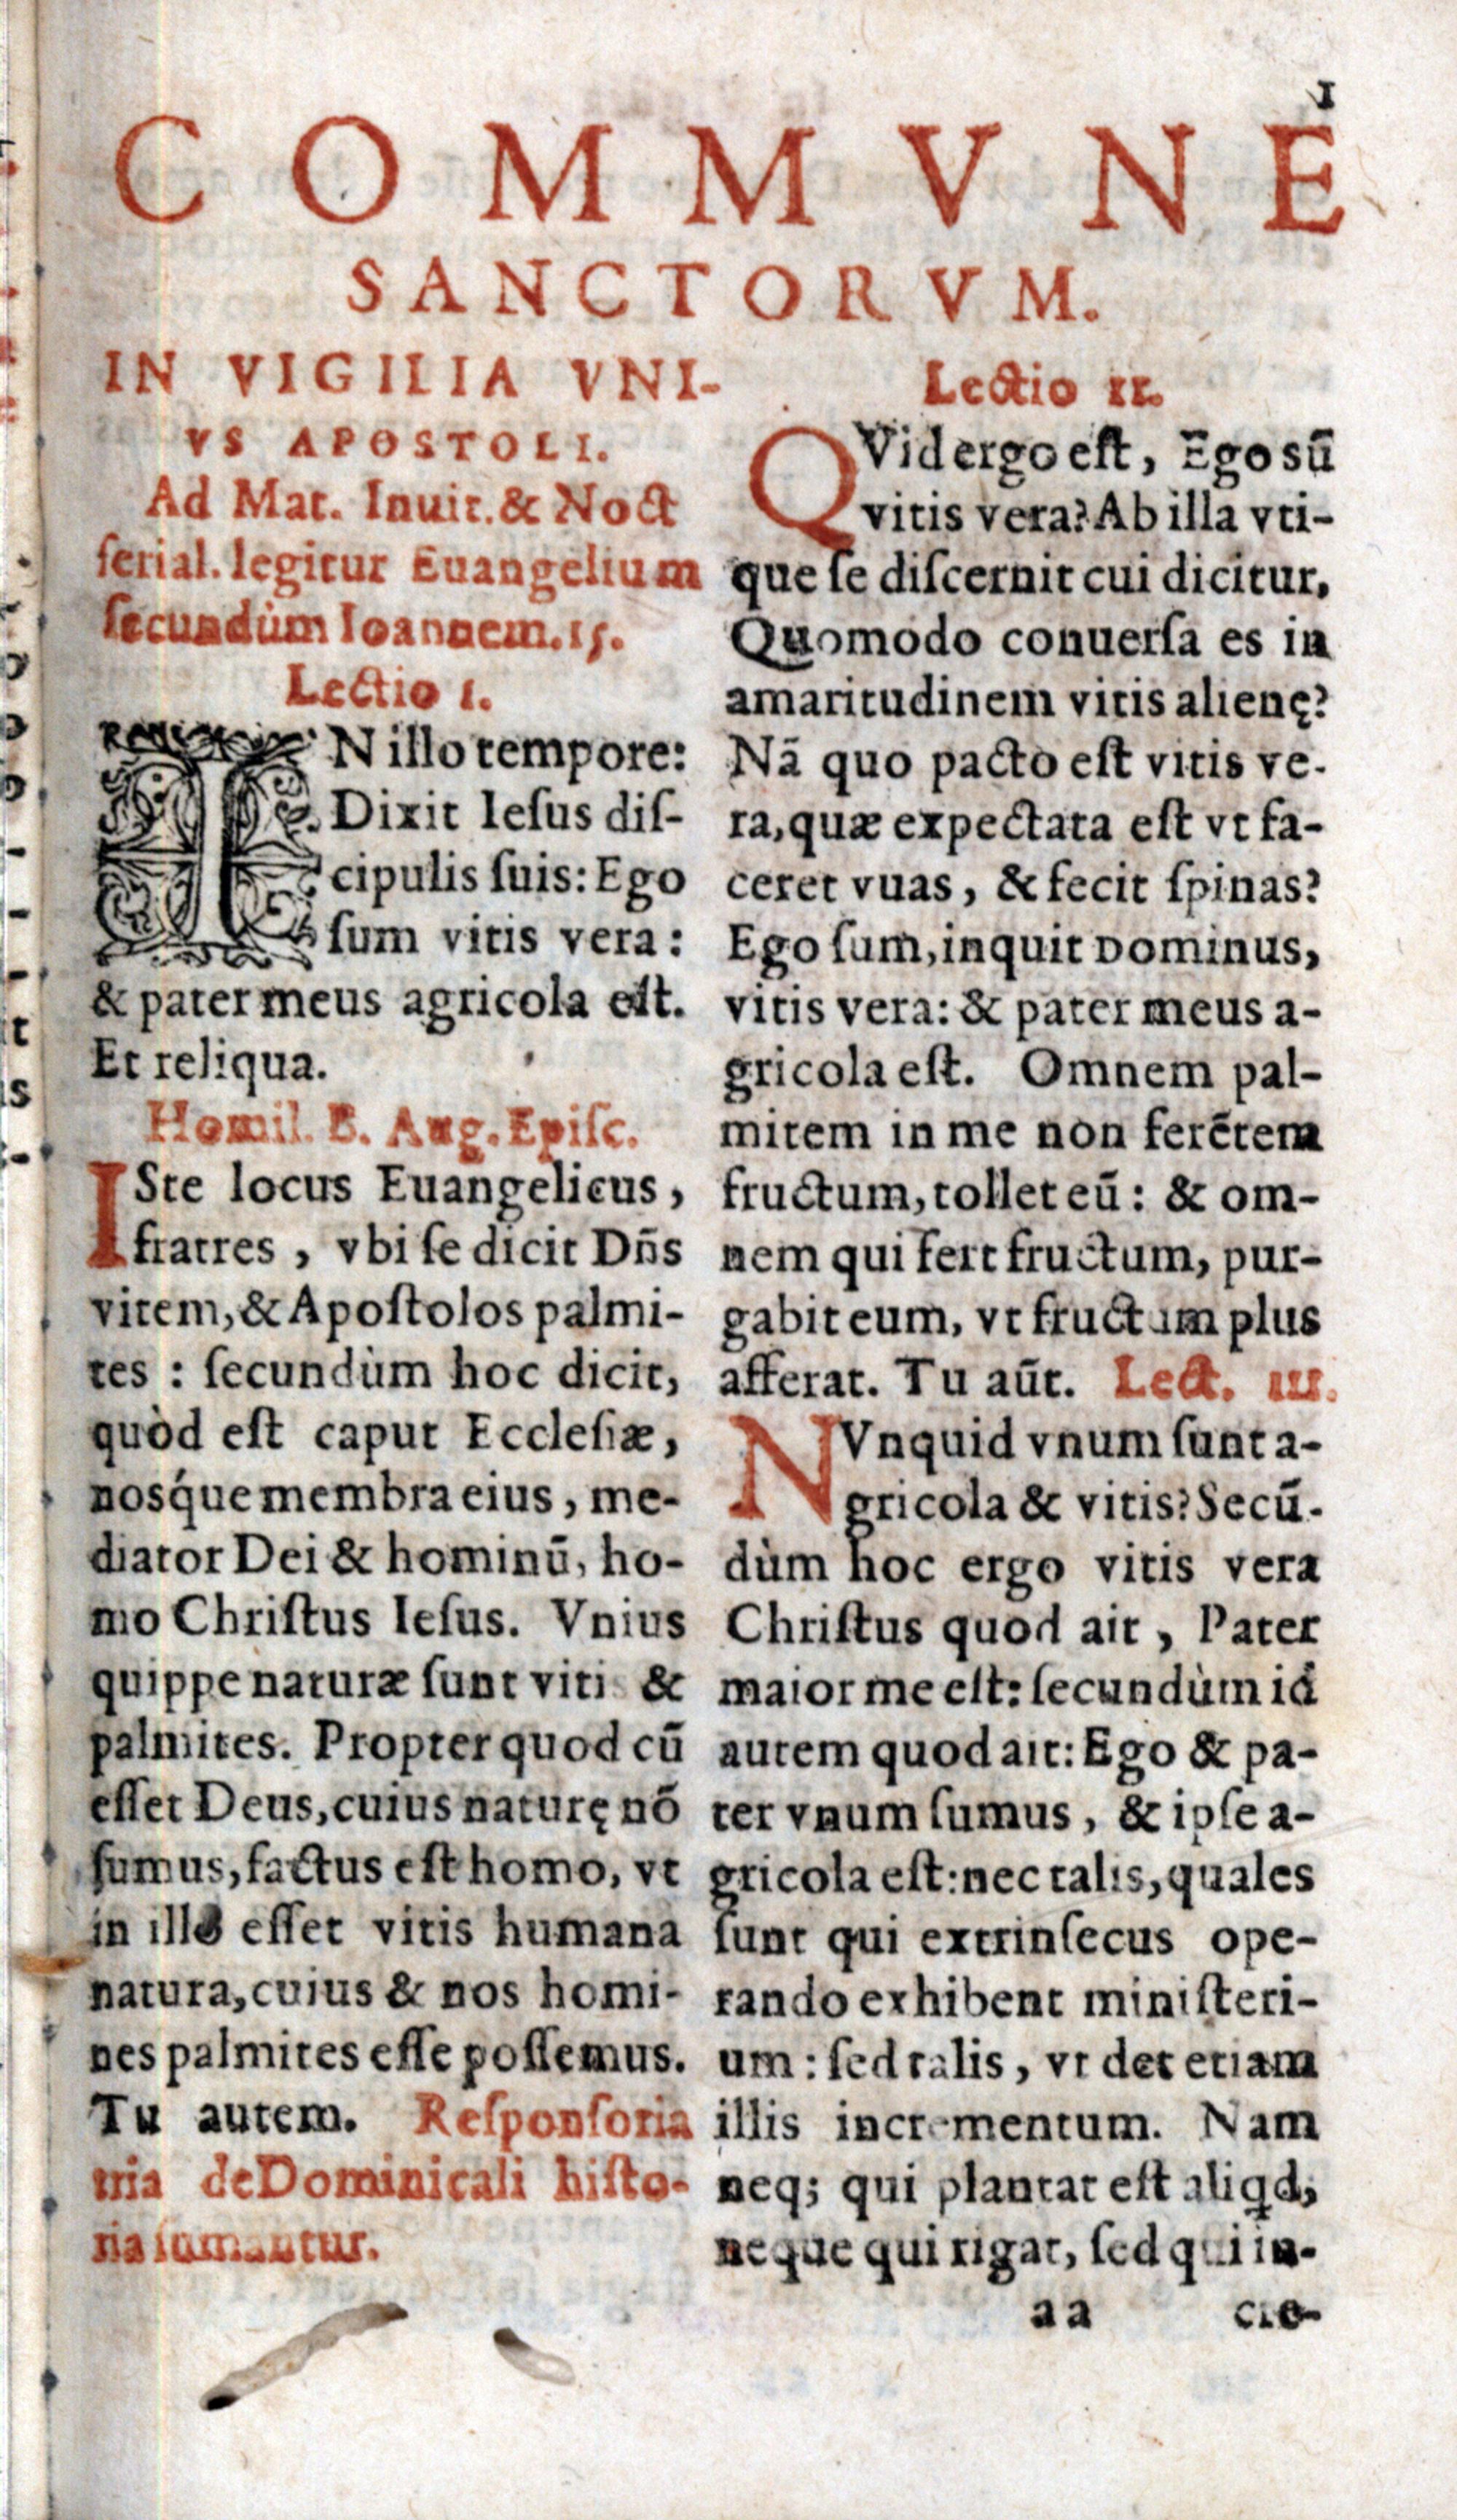 1
COMMVNE
SANCTORVM.
IN VIGILIA VNI-
VS APOSTOLI.
Ad Mat. Inuit. & Noct
ferial. legitur Euangelium
ſecundùm Ioannem. 15.
Lectio I.
IN illo tempore:
Dixit Ieſus diſ-
cipulis ſuis: Ego
ſum vitis vera:
& pater meus agricola eſt.
Et reliqua.
Homil. B. Aug. Epiſc.
ISte locus Euangelicus,
fratres, vbi ſe dicit Dñs
vitem, & Apoſtolos palmi-
tes: ſecundùm hoc dicit,
quòd eſt caput Eccleſiæ,
nosq́ue membra eius, me-
diator Dei & hominũ, ho-
mo Chriſtus Ieſus. Vnius
quippe naturæ ſunt vitis &
palmites. Propter quod cũ
eſſet Deus, cuius naturę nõ
ſumus, factus eſt homo, vt
in illo eſſet vitis humana
natura, cuius & nos homi-
nes palmites eſſe poſſemus.
Tu autem. Reſponſoria
tria de Dominicali hiſto-
ria ſumantur.
Lectio II.
QVid ergo eſt, Ego sũ
vitis vera? Ab illa vti-
que ſe diſcernit cui dicitur,
Quomodo conuerſa es in
amaritudinem vitis alienę?
Nã quo pacto eſt vitis ve-
ra, quæ expectata eſt vt fa-
ceret vuas, & fecit ſpinas?
Ego ſum, inquit Dominus,
vitis vera: & pater meus a-
gricola eſt. Omnem pal-
mitem in me non ferẽtem
fructum, tollet eũ: & om-
nem qui fert fructum, pur-
gabit eum, vt fructum plus
afferat. Tu aũt. Lect. III.
NVnquid vnum ſunt a-
gricola & vitis? Secũ-
dùm hoc ergo vitis vera
Chriſtus quod ait, Pater
maior me eſt: ſecundùm id
autem quod ait: Ego & pa-
ter vnum ſumus, & ipſe a-
gricola eſt: nec talis, quales
ſunt qui extrinſecus ope-
rando exhibent miniſteri-
um: ſed talis, vt det etiam
illis incrementum. Nam
neq; qui plantat eſt aliqd,
neque qui rigat, ſed qui in-
aa cre-